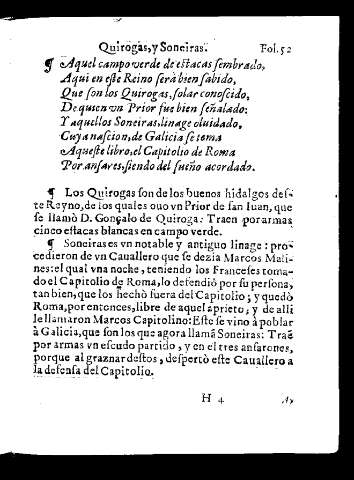 Quirogas, y Soneiras. Fol. 52
¶ Aquel campo verde de estacas sembrado,
Aqui en este Reino serà bien sabido,
Que son los Quirogas, solar conoscido,
De quien vn Prior fue bien señalado:
Y aquellos Soneiras, linage oluidado,
Cuya nascion, de Galicia se toma
Aqueste libro, el Capitolio de Roma
Por ansares, siendo del sueño acordado.
¶ Los Quirogas son de los buenos hidalgos des-
te Reyno, de los quales ouo vn Prior de san Iuan, que
se llamò D. Gonçalo de Quiroga: Traen por armas
cinco estacas blancas en campo verde.
¶ Soneiras es vn notable y antiguo linage: pro-
cedieron de vn Cauallero que se dezia Marcos Mali-
nes: el qual vna noche, teniendo los Franceses toma-
do el Capitolio de Roma, lo defendiò por su persona,
tan bien, que los hechò fuera del Capitolio; y quedò
Roma, por entonces, libre de aquel aprieto; y de alli
le llamaron Marcos Capitolino: Este se vino à poblar
à Galicia, que son los que agora llamã Soneiras: Traẽ
por armas vn escudo partido, y en el tres ansarones,
porque al graznar destos, despertò este Cauallero a
la defensa del Capitolio.
H 4